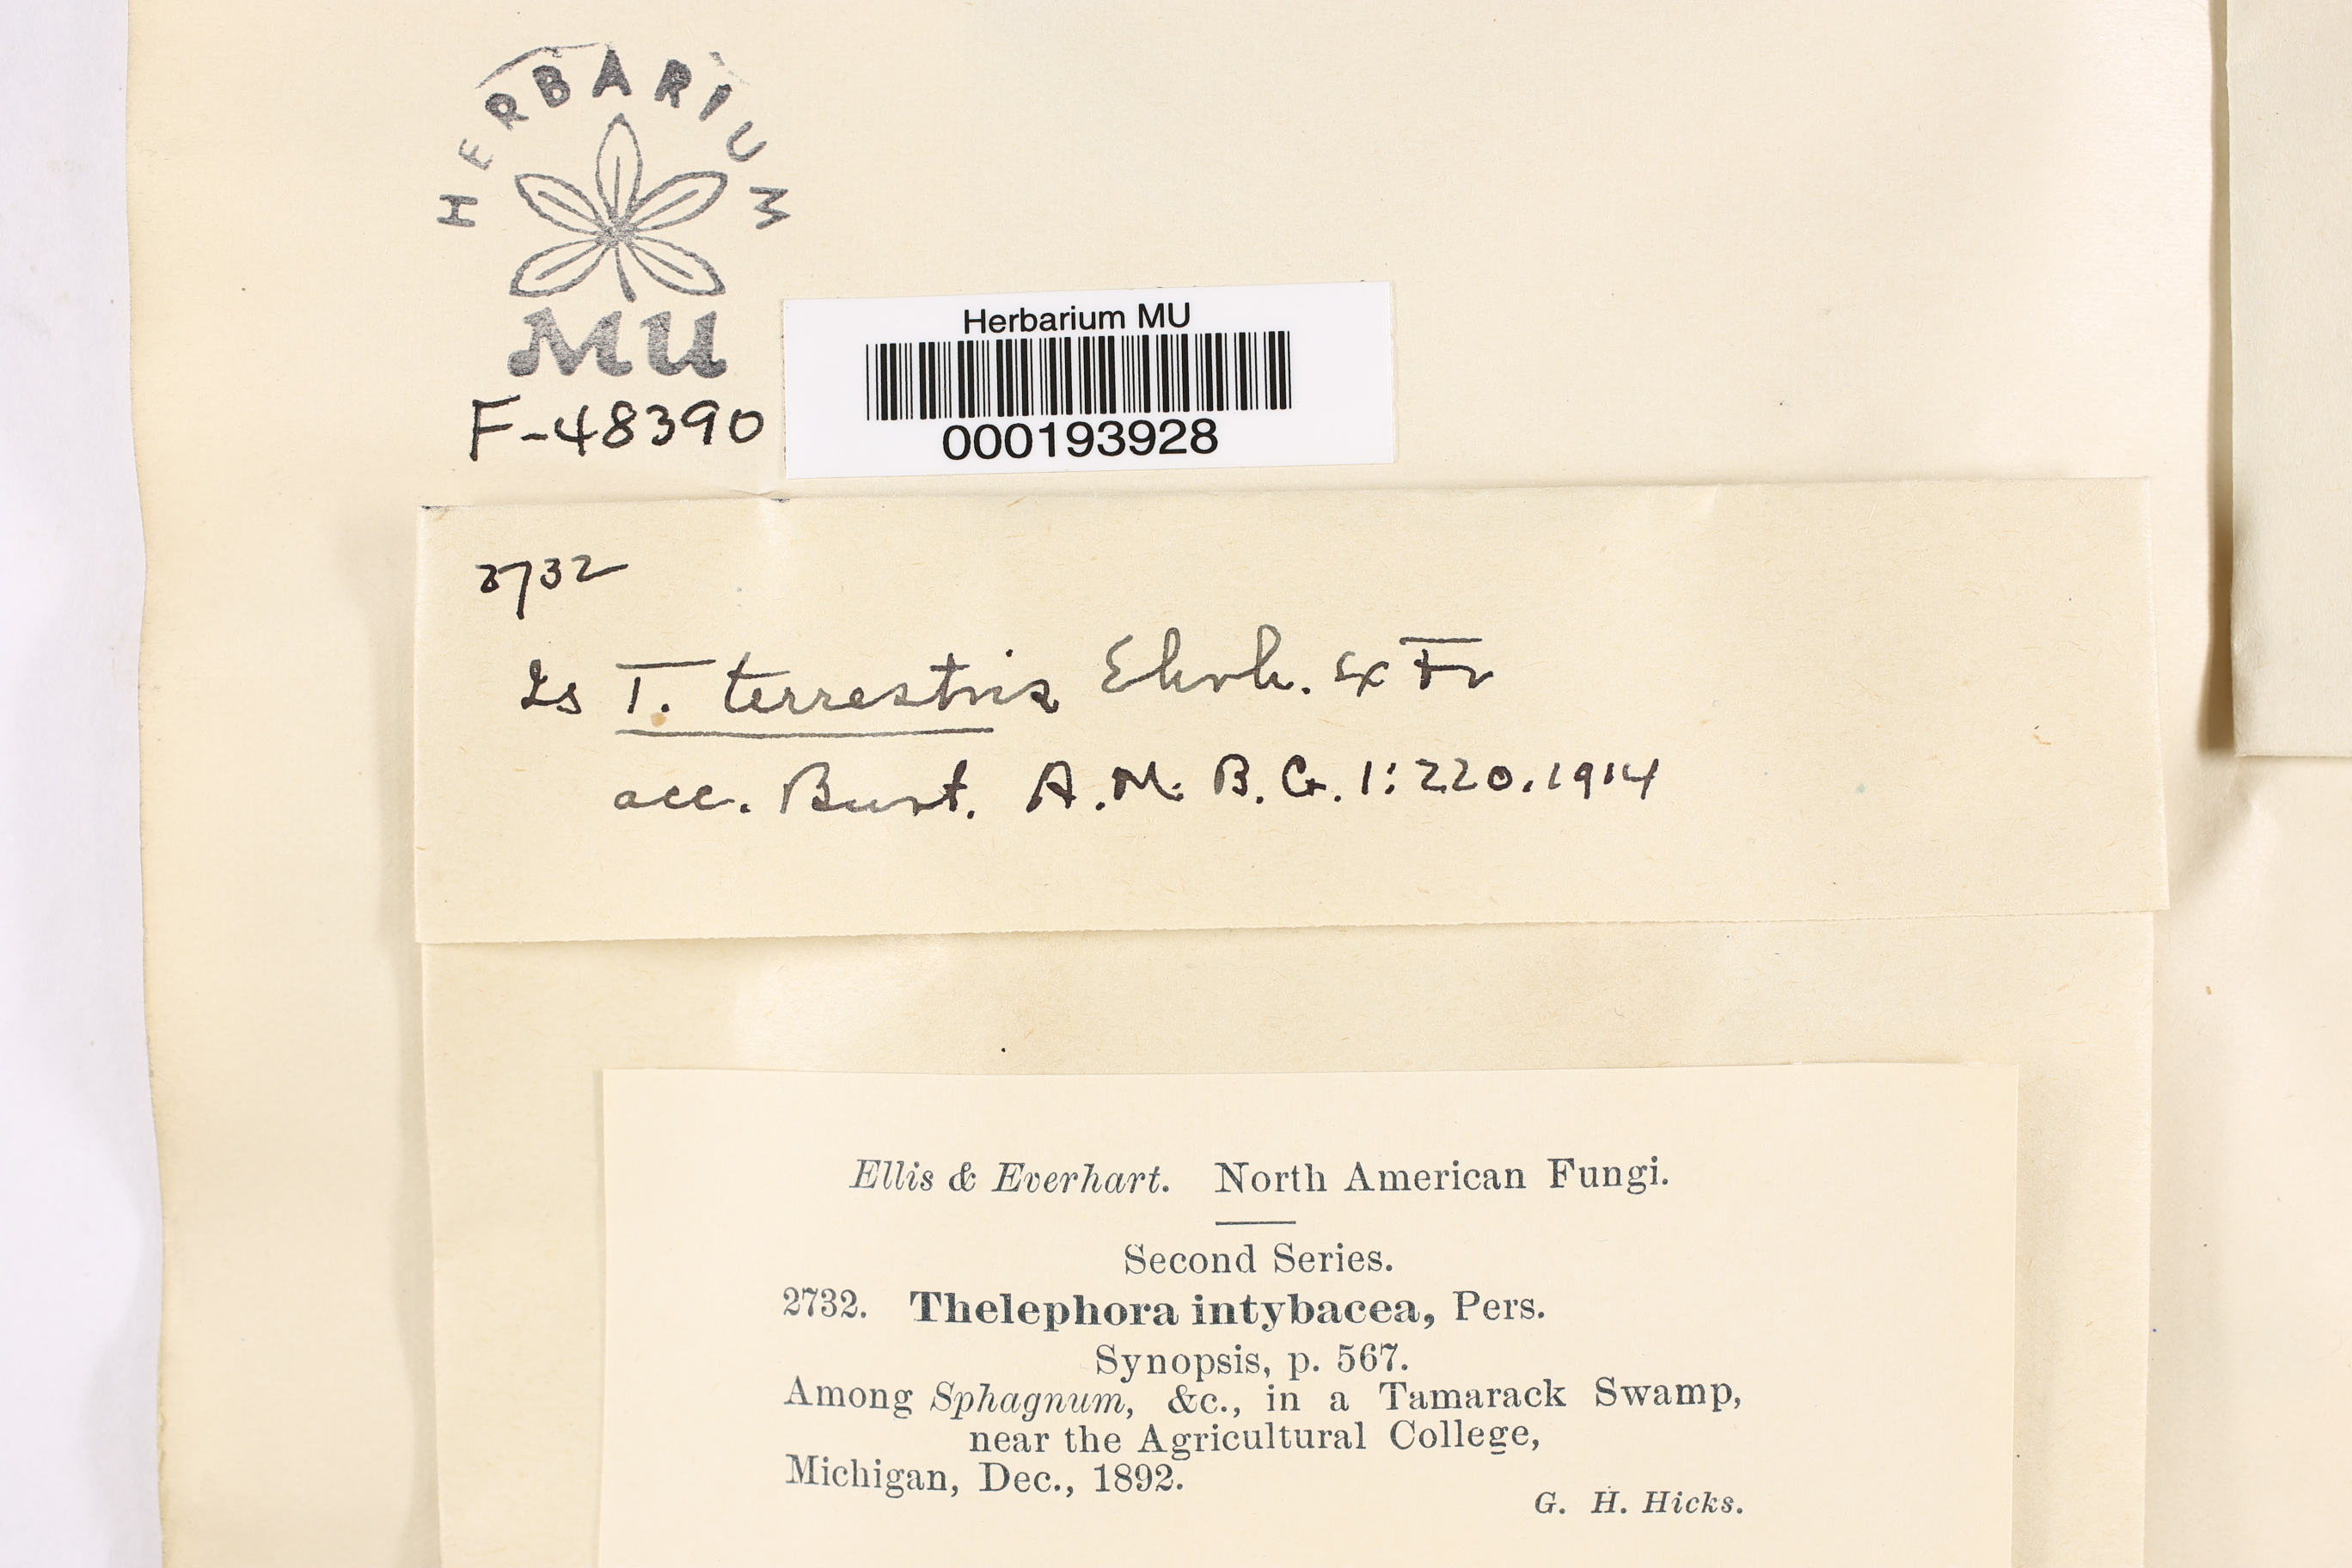 HERBARIUM
MU
F-48390
Herbarium MU
000193928
2732
Is T. terrestris Ehrh. ex Fr
acc. Burt. A.M.B.G. 1:220.1914
Ellis & Everhart. North American Fungi.
Second Series.
2732. Thelephora intybacea, Pers.
Synopsis, p. 567.
Among Sphagnum, &c., in a Tamarack Swamp,
near the Agricultural College,
Michigan, Dec., 1892.
G. H. Hicks.